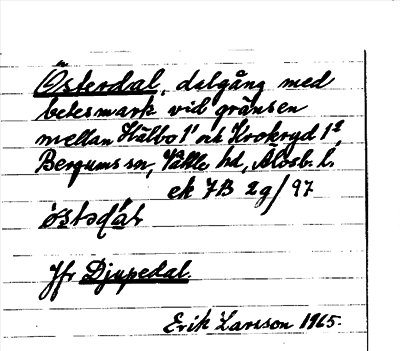 Österdal, dalgång med
betesmark vid gränsen
mellan Hulbo 1¹ och Krokryd 1²,
Bergums sn, Vättle hd, Älvsb. l.
ek 7B 2g/97
östədȧl
Jfr Djupedal.
Erik Larsson 1965.